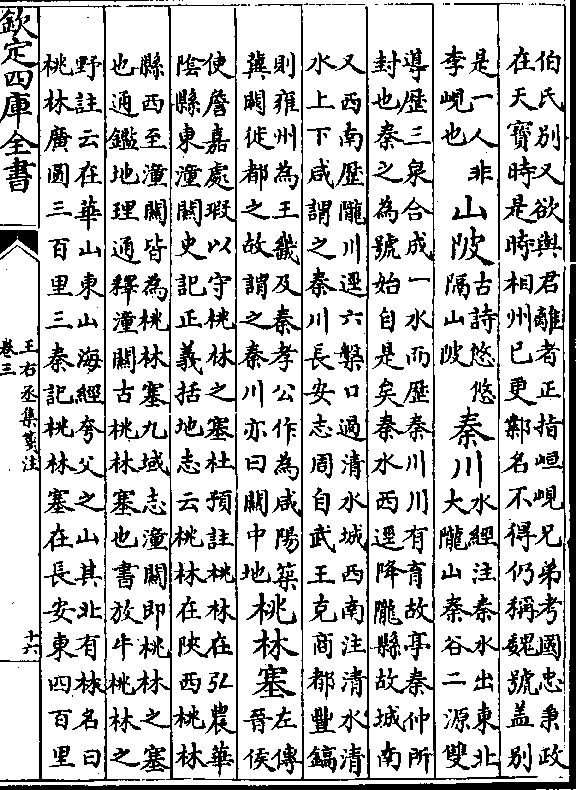 伯氏别又欲與君離者正指峘峴兄弟考國忠秉政
在天寶時是時相州已更鄴名不得仍稱魏號蓋别
是一人非
李峴也
山陂
古詩悠悠
隔山陂
秦川
水經注秦水出東北
大隴山秦谷二源雙
導歴三泉合成一水而歴秦川川有育故亭秦仲所
封也秦之為號始自是矣秦水西逕降隴縣故城南
又西南歴隴川逕六槃口過清水城西南注清水清
水上下咸謂之秦川長安志周自武王克商都豐鎬
則雍州為王畿及秦孝公作為咸陽築
冀闕徙都之故謂之秦川亦曰關中地
桃林塞
左傳
晉侯
使詹嘉處瑕以守桃林之塞杜預註桃林在弘農華
陰縣東潼關史記正義括地志云桃林在陜西桃林
縣西至潼關皆為桃林塞九域志潼關即桃林之塞
也通鑑地理通釋潼關古桃林塞也書放牛桃林之
野註云在華山東山海經夸父之山其北有林名曰
桃林廣圓三百里三秦記桃林塞在長安東四百里
欽定四庫全書
王右丞集箋注
卷三
十六